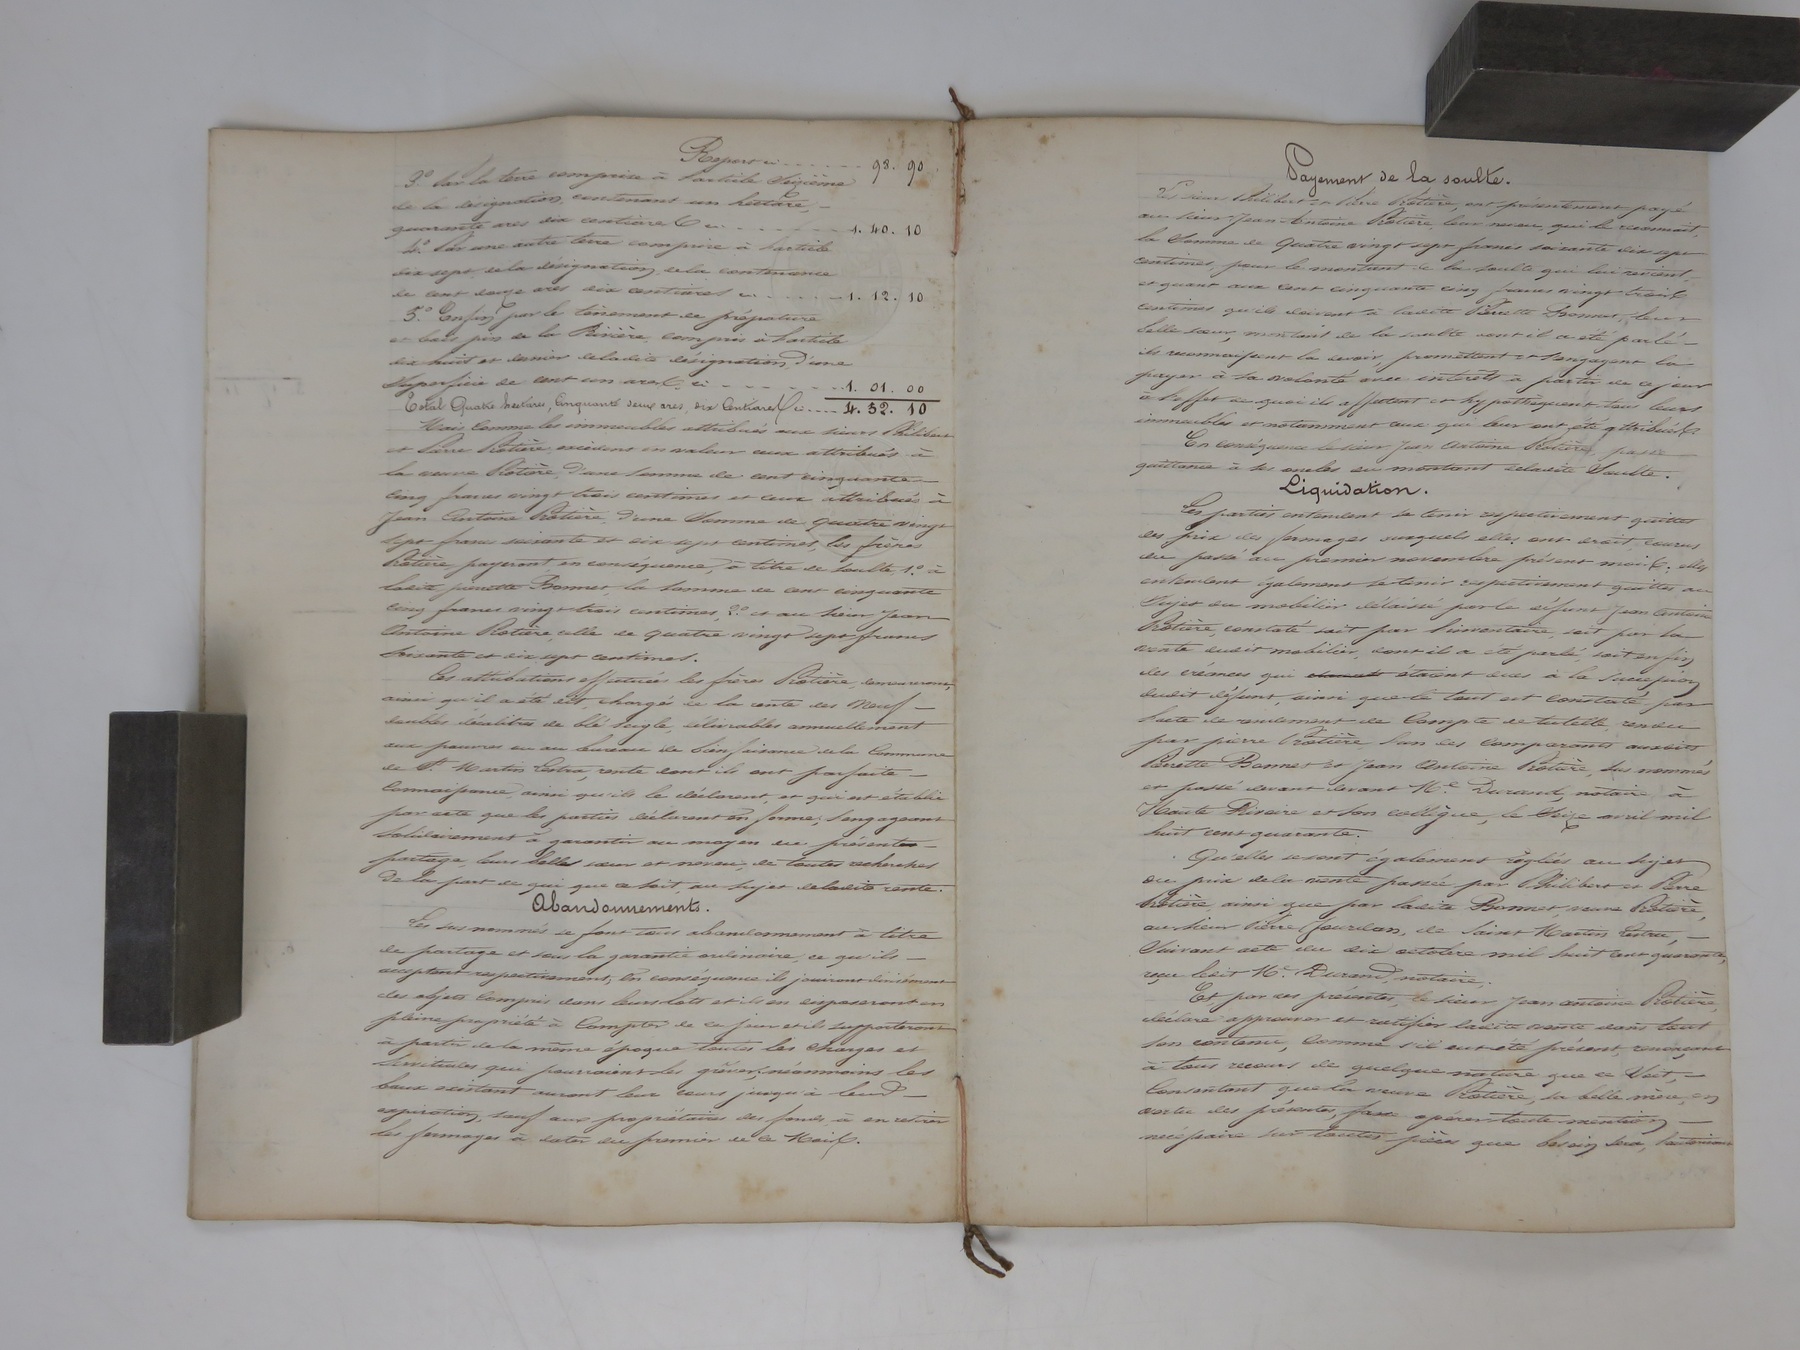 Report ci ........ 98. 90
3.° Par la terre comprise à l'article Seizième
de la désignation, contenant un hectare,
quarante ares dix centiares ci ........ 1. 40. 10
4.° Par une autre terre comprise à l'article
dix sept de la désignation, de la contenance
de cent douze ares dix centiares ci ....... 1. 12. 10
5.° Enfin par le ténement de
et bois pins de la Rivière, compris à l'article
dix huit et dernier de ladite désignation, d'une
Superficie de cent un ares, ci ........ 1. 01. 00
Total Quatre hectares, Cinquante deux ares, dix Centiares ci .... 4. 52. 10
Mais comme les immeubles attribués aux sieurs Philibert
et Pierre Rotière, excèdent en valeur ceux attribués à
la veuve Rotière, d'une somme de cent cinquante
cinq francs vingt trois centimes et ceux attribués à
Jean Antoine Rotière, d'une Somme de quatre vingt
sept francs soixante et dix sept centimes, les frères
Rotière, payeront en conséquence, à titre de soulte, 1.° à
ladite pierrette Bonnet, la somme de cent cinquante
cinq francs vingt trois centimes, 2.° et au sieur Jean
Antoine Rotière, celle de quatre vingt sept francs
soixante et dix sept centimes.
Ces attributions effectuées les frères Rotière, demeureront,
ainsi qu'il a été dit, chargés de la rente des Neuf
doubles décalitres de blé seigle, délivrables annuellement
aux pauvres ou au bureau de bienfaisance de la Commune
de S.t Martin Lestra, rente dont ils ont parfaite
Connaissance, ainsi qu'ils le déclarent, et qui est établie
par acte que les parties déclarent en forme; s'engageant
solidairement à garantir au moyen du présent
partage, leurs belle sœur et neveu, de toutes recherches
de la part de qui que ce soit, au sujet de ladite rente.
Abandonnements.
Les sus nommés se font tous abandonnement à titre
de partage et sous la garantie ordinaire, ce qu'ils
acceptent respectivement; En conséquence ils jouiront divisément
des objets Compris dans leurs lots et ils en disposeront en
pleine propriété à Compter de ce jour et ils supporteront
à partir de la même époque toutes les charges et
servitudes qui pourraient les grèver; néanmoins les
baux existant auront leur cours jusqu'à leur
expiration, sauf aux propriétaires des fonds à en retirer
les fermages à dater du premier de ce Mois.
Payement de la soulte.
Les sieurs Philibert et Pierre Rotière, ont présentement payé
au sieur Jean Antoine Rotière, leur neveu, qui le reconnait,
la Somme de Quatre vingt sept francs soixante dix sept
centimes, pour le montant de la soulte qui lui revient,
et quant aux cent cinquante cinq francs vingt trois
centimes qu'ils doivent à ladite Pierrette Bonnet, leur
belle sœur, montant de la soulte dont il a été parlé
ils reconnaissent la devoir, promettent et s'engagent la
payer à sa volonté avec intérêts à partir de ce jour
à l'effet de quoi ils affectent et hypothèquent tous leurs
immeubles et notamment ceux qui leur ont été attribués.
En conséquence le sieur Jean Antoine Rotière, passe
quittance à ses oncles du montant de ladite Soulte.
Liquidation.
Les parties entendent se tenir respectivement quittes
des prix des fermages auxquels elles ont droit, courus
du passé au premier novembre présent mois; elles
entendent également se tenir respectivement quittes au
Sujet du mobilier délaissé par le défunt Jean Antoine
Rotière, constaté soit par l'inventaire, soit par la
vente dudit mobilier, dont il a été parlé, soit enfin
des créances qui étaient dues à la Succession
dudit défunt, ainsi que le tout est constaté par
l'acte de rendement de Compte de tutelle, rendu
par pierre Rotière l'un des comparants auxdits
Pierrette Bonnet et Jean Antoine Rotière, sus nommés
et passé devant devant M.e Durand, notaire à
Haute Rivoire et son collègue, le Seize avril mil
huit cent quarante.
Qu'elles se sont également réglées au sujet
du prix de la vente passée par Philibert et Pierre
Rotière ainsi que par ladite Bonnet, veuve Rotière,
au sieur Pierre Jourdan, de Saint Martin Lestra,
Suivant acte du dix octobre mil huit cent quarante,
reçu ledit M.e Durand, notaire.
Et, par ces présentes, le sieur Jean Antoine Rotière,
déclare approuver et ratifier ladite vente dans tout
son contenu, comme s'il eut été présent, renonçant
à tous recours de quelque nature que ce soit,
Consentant que la veuve Rotière, sa belle mère, en
vertu des présentes, fasse opérer toute mention
nécessaire sur toutes pièces que besoin sera,